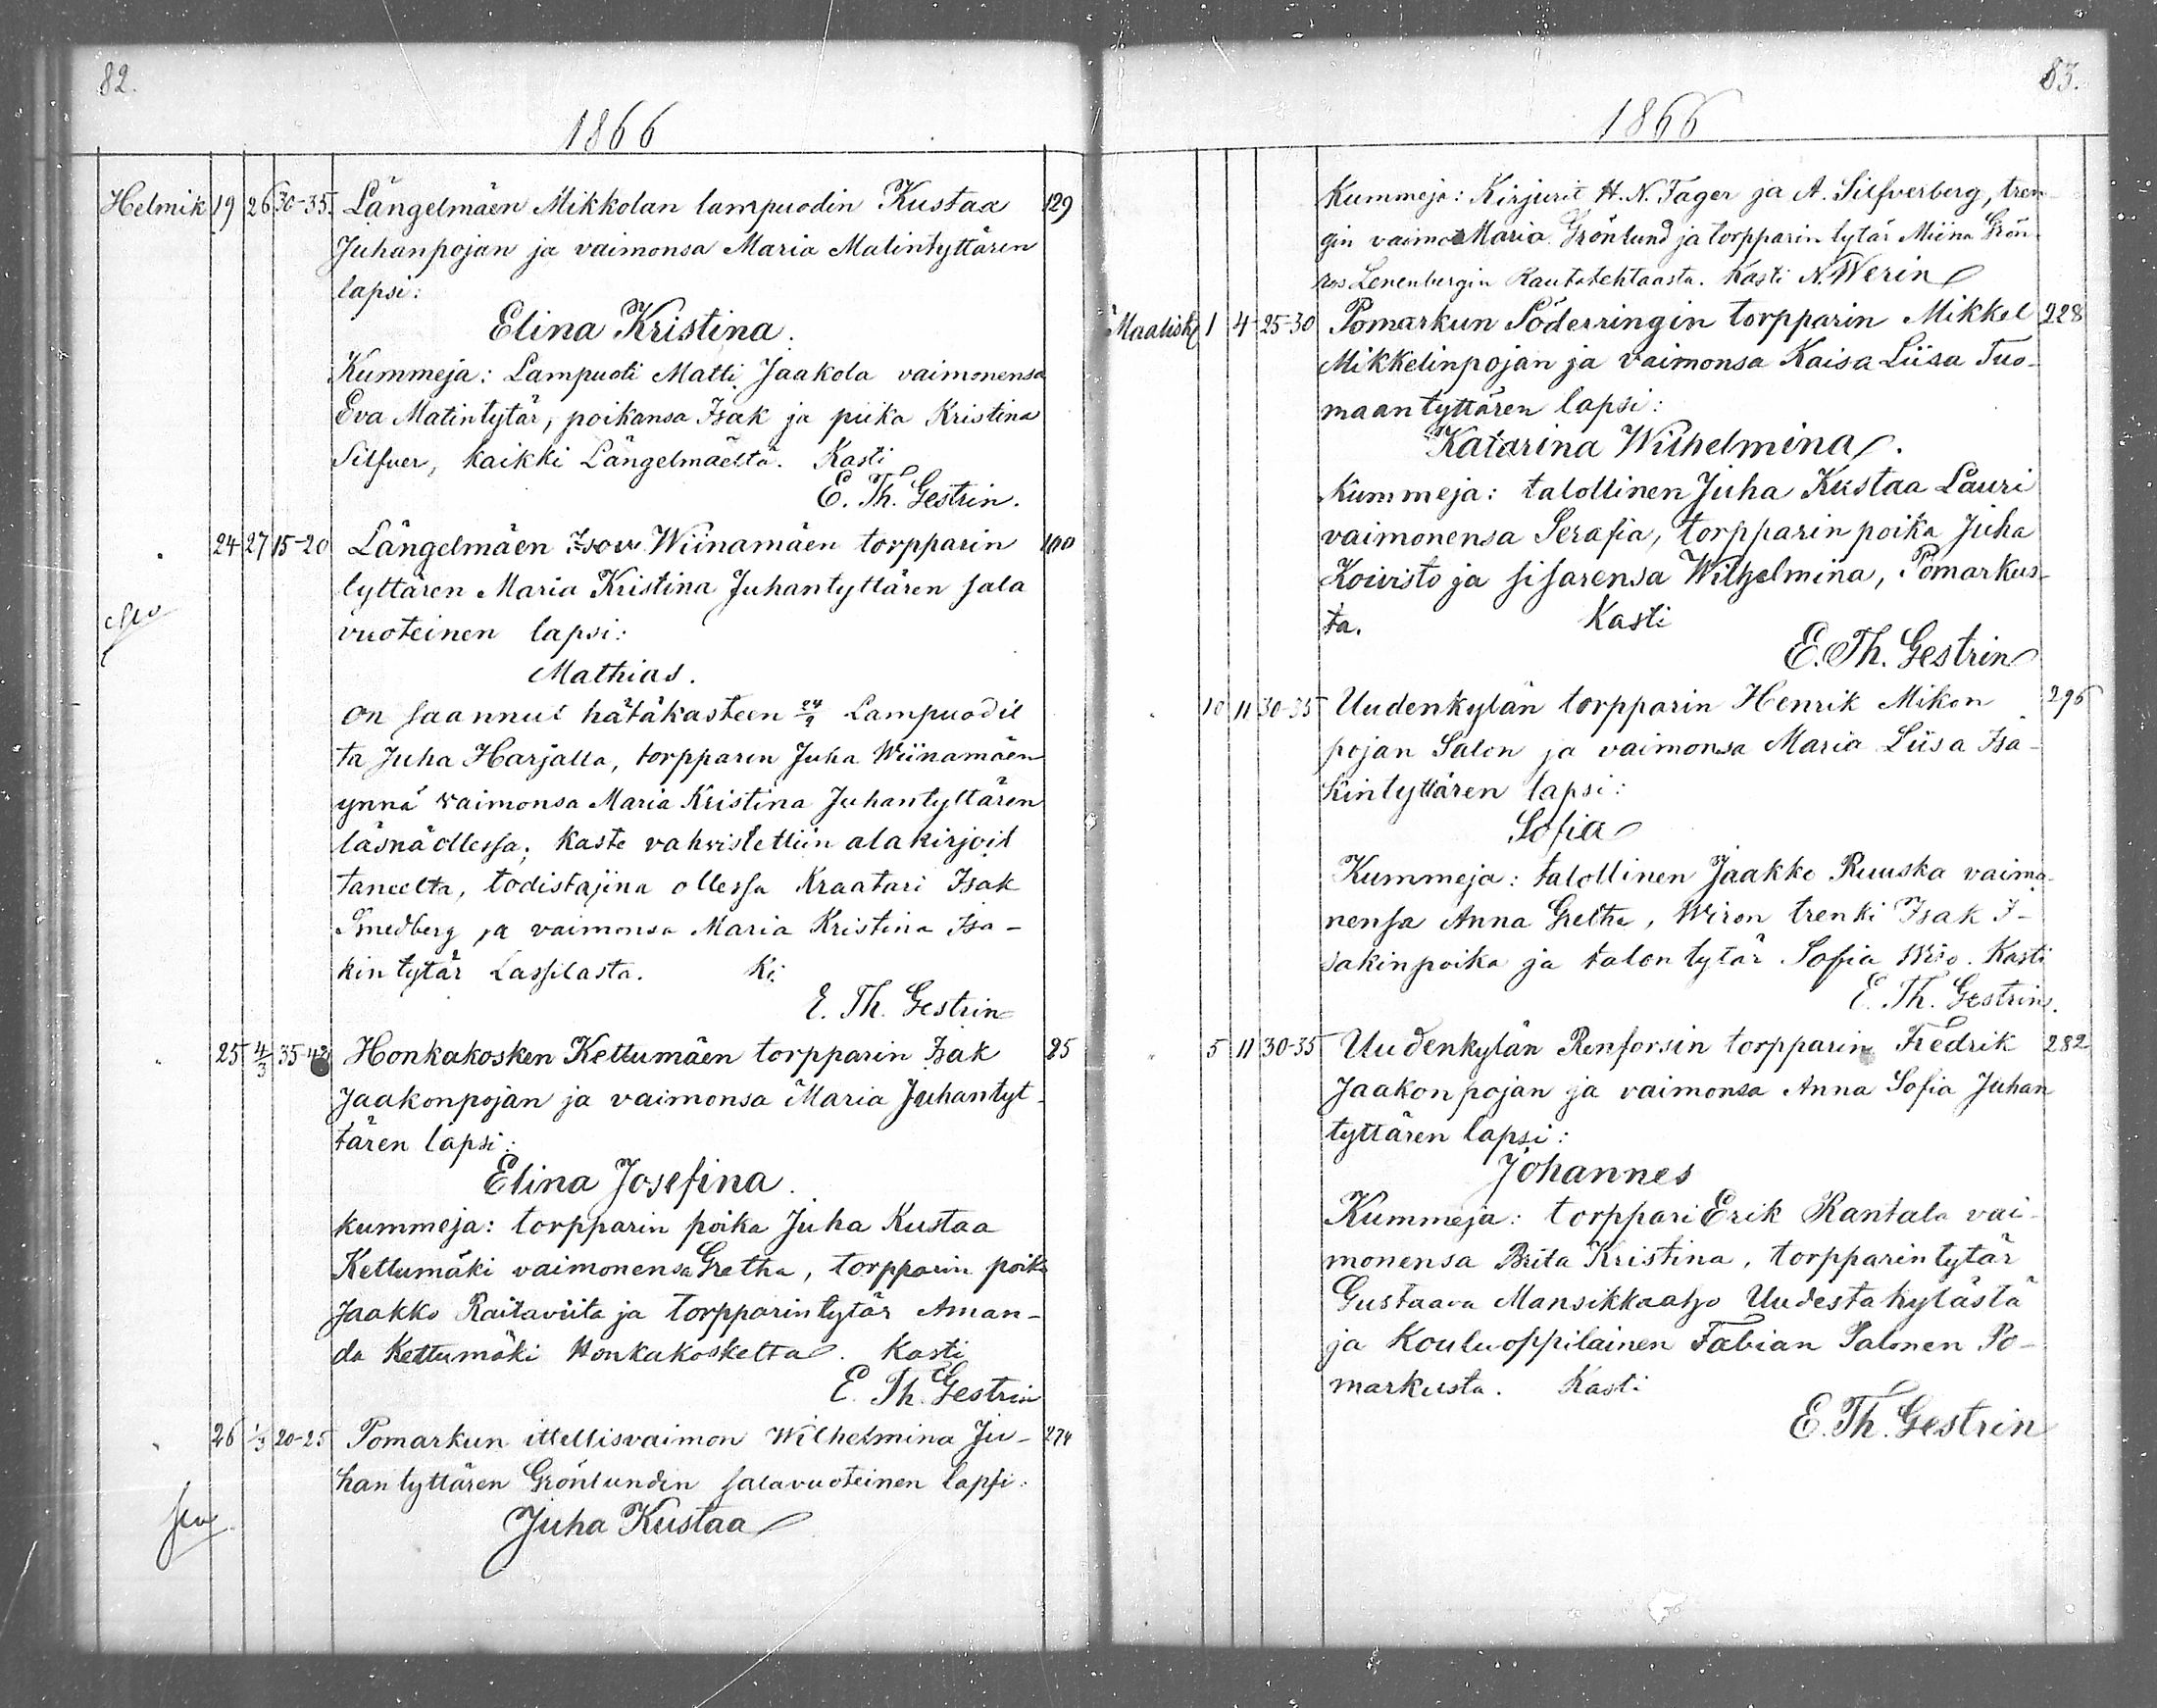 82.
1866
Helmik 19 26 30-35. Längelmäen Mikkolan lampuodin Kustaa 129
Juhanpojan ja vaimonsa Maria Matintyttären
lapsi:
Elina Kristina.
Kummeja: Lampuoti Matti Jaakola vaimonensa
Eva Matintytär, poikansa Isak ja piika Kristina
Silfver, kaikki Längelmäeltä. Kasti
E. Th. Gestrin.
" 24 27 15-20 Längelmäen Wiinamäen torpparin 100
tyttären Maria Kristina Juhantyttären sala
vuoteinen lapsi:
Mathias.
on saannut hätäkasteen Lampuodil
ta Juha Harjalta, torpparin Juha Wiinamäen
ynnä vaimonsa Maria Kristina Juhantyttären
läsnäollessa; Kaste vahvistettiin alakirjoit
taneelta, todistajina ollessa Kraatari Isak
Smedberg ja vaimonsa Maria Kristina Isa-
kin tytär Lassilasta. Ki:
E. Th. Gestrin
" 25 4/3 35-40 Honkakosken Kettumäen torpparin Isak 25
Jaakonpojan ja vaimonsa Maria Juhantyt-
tären lapsi:
Elina Josefina.
kummeja: torpparin poika Juha Kustaa
Kettumäki vaimonensa Gretha, torpparin poika
Jaakko Raitaviita ja torpparintytär Aman-
da Kettumäki Honkakoskelta. Kasti
E. Th. Gestrin
" 26 1/3 20-25 Pomarkun ittellisvaimon Wilhelmina Ju- 274
hantyttären Grönlundin salavuoteinen lapsi:
Juha Kustaa
83.
1866
Kummeja: Kirjurit H. N. Fager ja A. Silfverberg, tren
gin vaimo Maria Grönlund ja torpparin tytär Miina Grön-
ros Lenenbergin Rautatehtaasta. Kasti N. Werin
Maalisk 1 4 25-30 Pomarkun Söderringin torpparin Mikkel 228
Mikkelinpojan ja vaimonsa Kaisa Liisa Tuo-
maantyttären lapsi:
Katarina Wilhelmina.
Kummeja: talollinen Juha Kustaa Lauri
vaimonensa Serafia, torpparin poika Juha
Koivisto ja sisarensa Wilhelmina, Pomarkus-
ta. Kasti
E. Th. Gestrin
" 10 11 30-35 Uudenkylän torpparin Henrik Mikon 296
pojan Salon ja vaimonsa Maria Liisa Isa-
kintyttären lapsi:
Sofia
Kummeja: talollinen Jaakko Ruuska vaimo-
nensa Anna Gretha, Wiron trenki Isak I-
sakinpoika ja talon tytär Sofia Wiro. Kasti
E. Th. Gestrin.
" 5 11 30-35 Uudenkylän Renforsin torpparin Fredrik 282
Jaakonpojan ja vaimonsa Anna Sofia Juhan
tyttären lapsi:
Johannes
Kummeja: torppari Erik Rantala vai-
monensa Brita Kristina, torpparintytär
Gustaava Mansikkaaho Uudestakylästä
ja Kouluoppilainen Fabian Salonen Po-
markusta. Kasti
E. Th. Gestrin